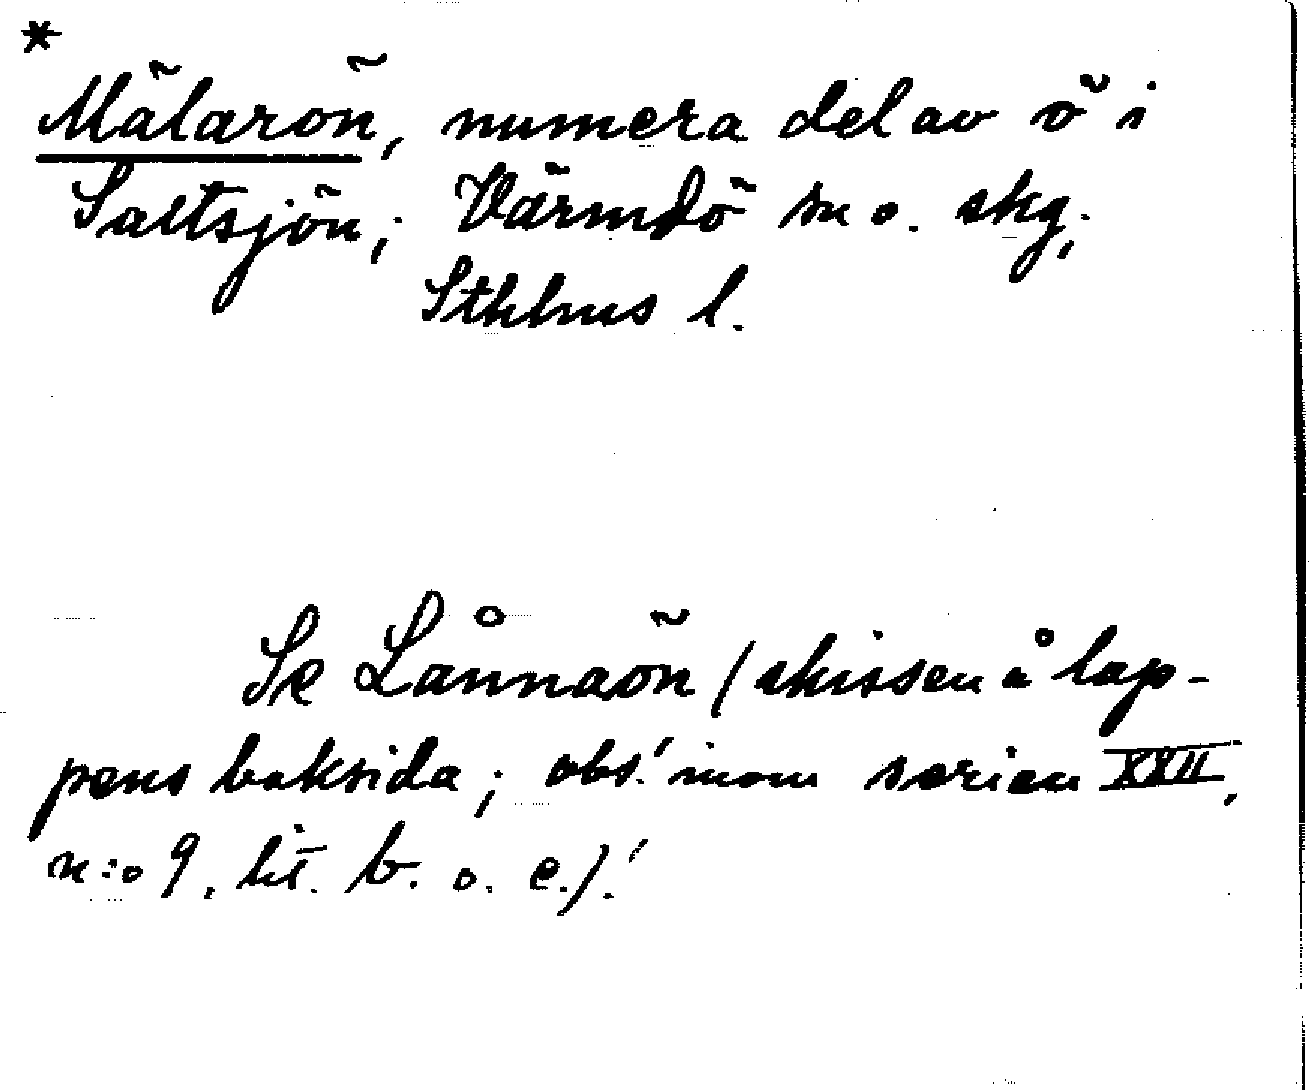 *
Mälarön, numera del av ö i
Saltsjön; Värmdö sn o. skg,
Sthlms l.
Se Långaön (skissen å lap-
pens baksida; obs.! inom serien XXII,
n:o 9, lit. b. o. c.)!